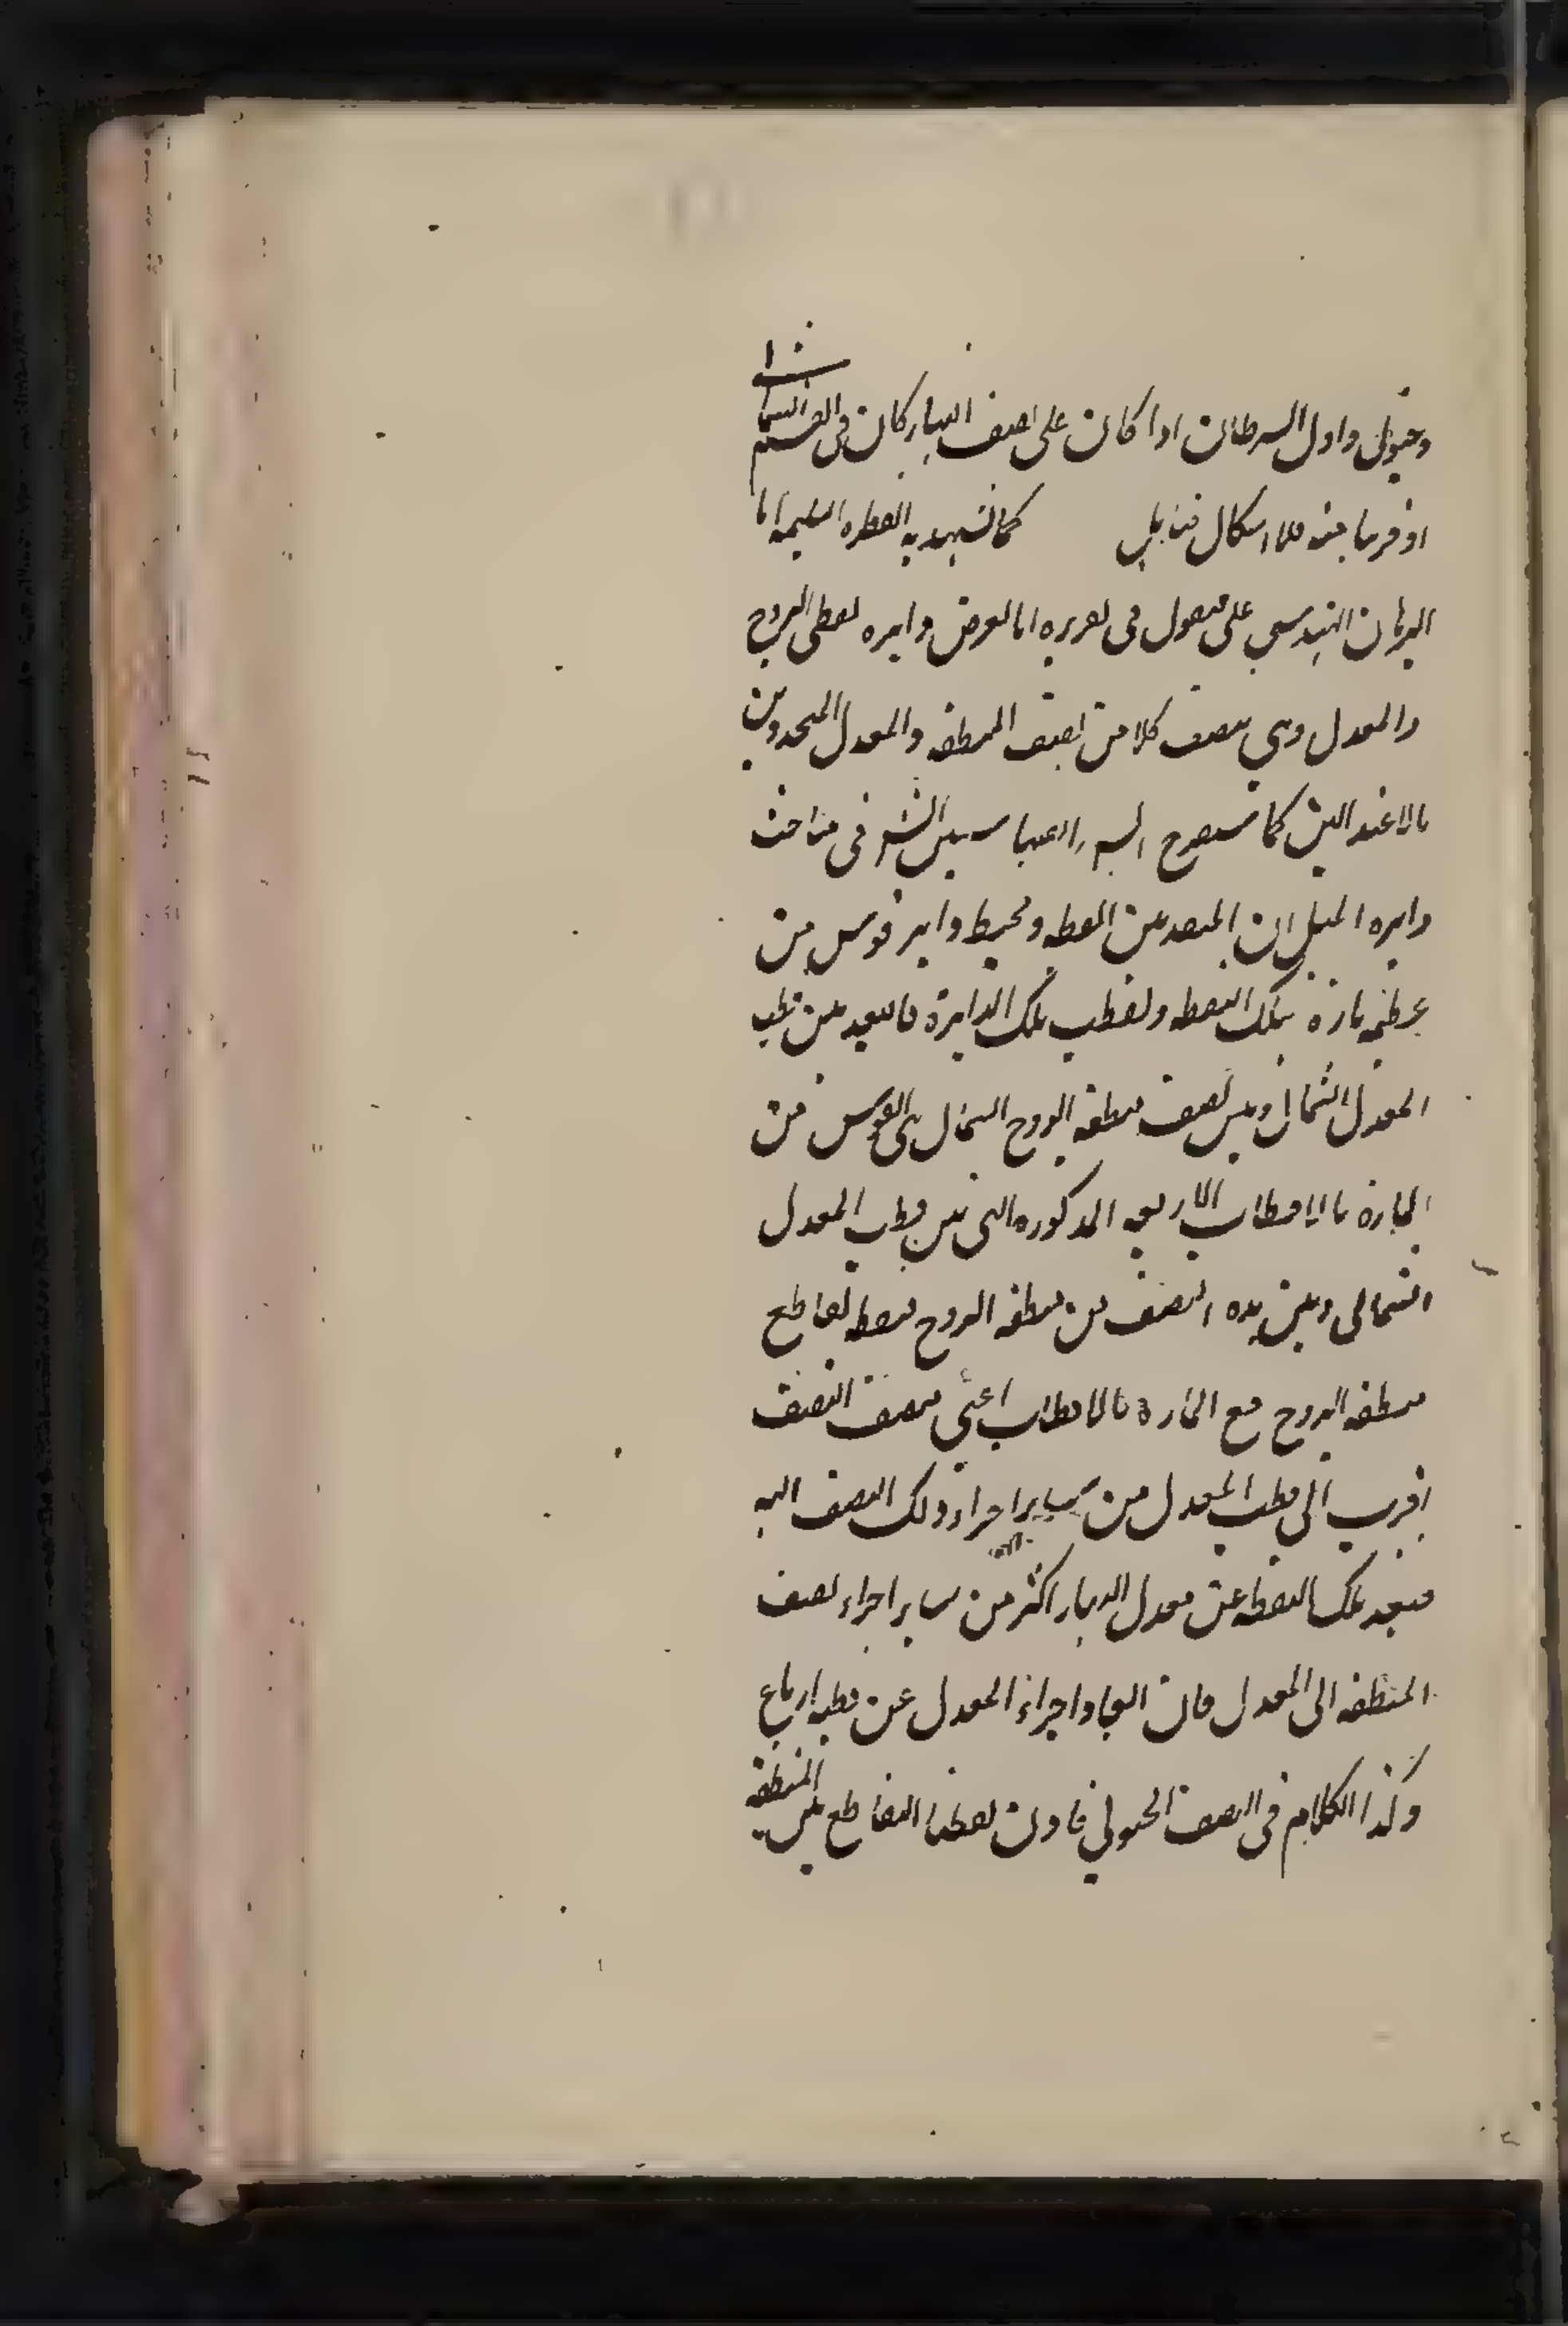 وجنوبى واول السرطان اذا كان على نصف النهار كان فى القسم الشمالى
او قريبا منه فلا اشكال فتأمل كما تشهد به الفطرة السليمة اما
البرهان الهندسى على فنقول فى تقريره انا نفرض دايرة تقطبى البروج
والمعدل وهى تنصف كلا من نصف المنطقة والمعدل المحدودين
بالاعتدالين كما سيصرح الشر فى مباحث
دايرة الميل ان البعد بين النقطة ومحيط دايرة قوس من
عظيمة مارة بتلك النقطة وبقطب تلك الدايرة فالبعد بين قطب
المعدل الشمالى وبين نصف منطقة البروج الشمالى هى القوس من
المارة بالاقطاب الاربعة المذكورة التى بين قطب المعدل
الشمالى وبين هذه النصف من منطقة البروج فنقطة تقاطع
منطقة البروج مع المارة بالاقطاب اعنى منصف النصف
اقرب الى قطب المعدل من ساير اجزاء ذلك النصف اليه
فبعد تلك النقطة عن معدل النهار اكثر من ساير اجزاء نصف
المنطقة الى المعدل فان ابعاد اجزاء المعدل عن قطبه ارباع
وكذا الكلام فى النصف الجنوبى فاذن نقطتا التقاطع بين المنطقة